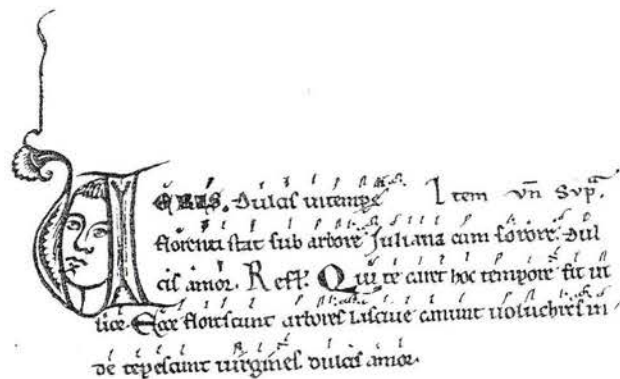 VERIS. dulcis intempe Item vn Svp.
florenti stat sub arbore Juliana cum sorore. Dul
cis amor. Refl. Qui te caret hoc tempore fit ui
lior. Ecce florescunt arbores lasciue canunt uoluchres in
de tepescunt uirgines. dulcis amor.